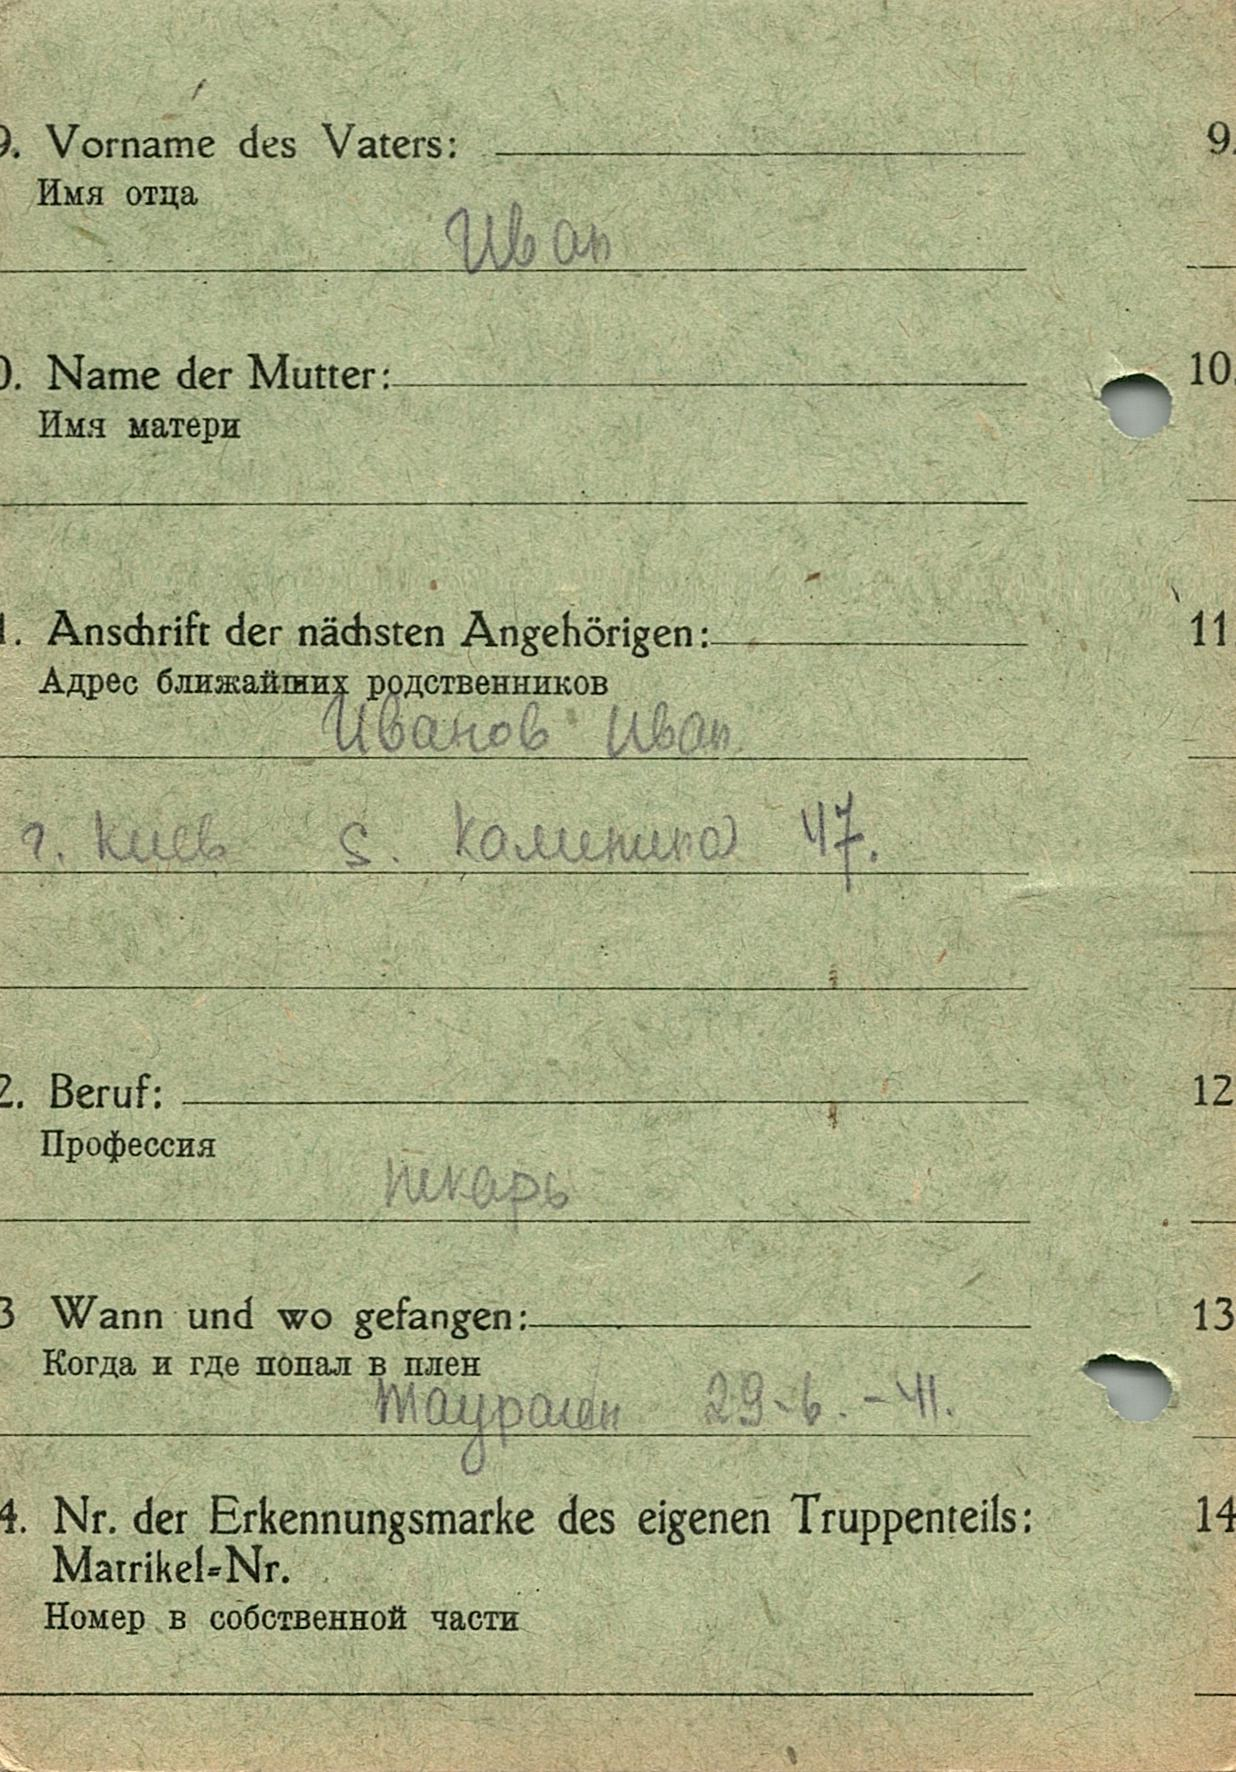 9. Vorname des Vaters: 9.
Имя отца
Иван
0. Name der Mutter: 10.
Имя матери
1. Anschrift der nächsten Angehörigen: 11.
Адрес ближайших родственников
Иванов Иван
г. Киев s. Калинина 47.
2. Beruf: 12
Профессия
пекарь
3 Wann und wo gefangen: 13
Когда и где попал в плен
29-6.-41.
4. Nr. der Erkennungsmarke des eigenen Truppenteils: 14
Matrikel-Nr.
Номер в собственной части